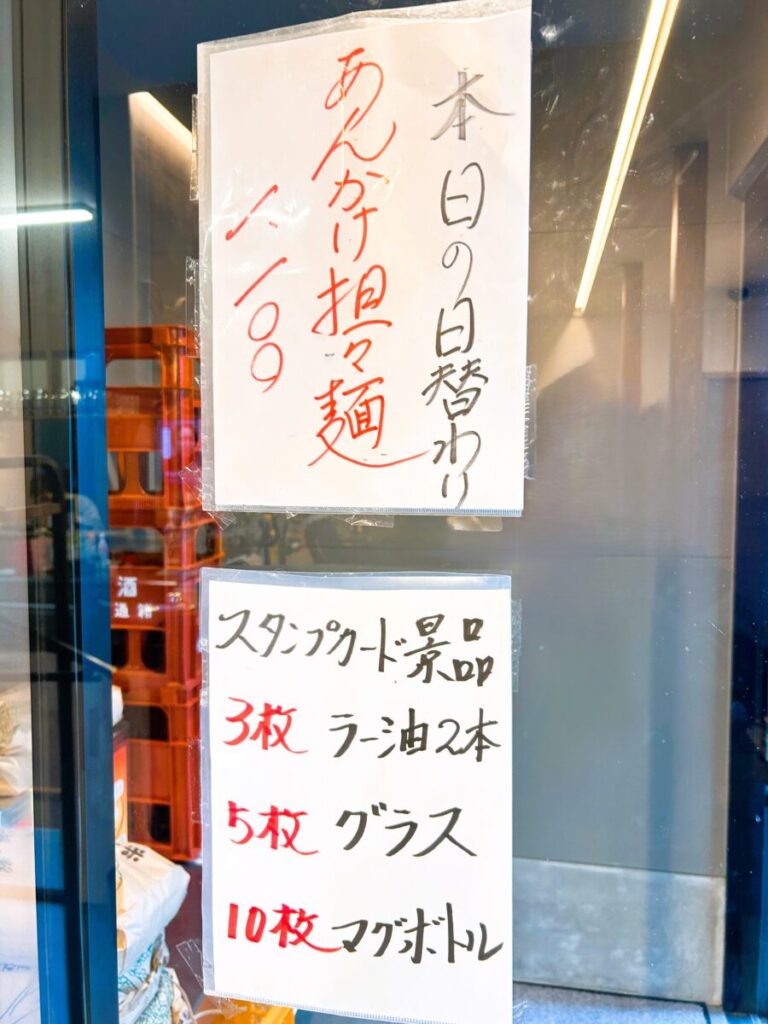 本日の日替わり
あんかけ担々麺
1,100
スタンプカード景品
3枚 ラー油2本
5枚 グラス
10枚 マグボトル
酒
米